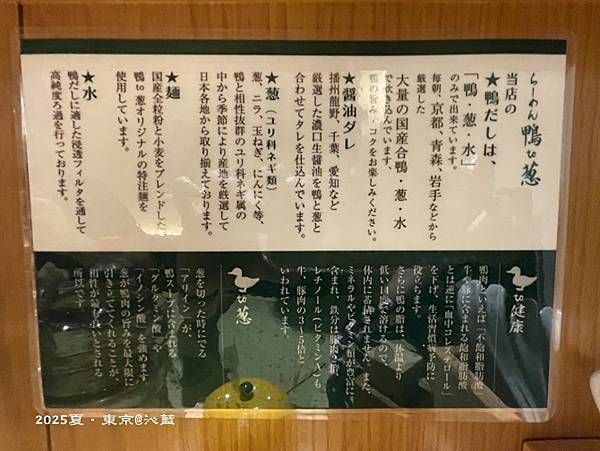 らーめん 鴨to葱
当店の
★鴨だしは、
「鴨・葱・水」
のみで出来ています。
毎朝、京都、青森、岩手などから
厳選した
大量の国産合鴨・葱・水
で炊き込んでいます。
鴨の旨み・コクをお楽しみください。
★醤油ダレ
播州龍野、千葉、愛知など
厳選した濃口生醤油を鴨と葱と
合わせてタレを仕込んでいます。
★葱(ユリ科ネギ類)
葱、ニラ、玉ねぎ、にんにく等、
鴨と相性抜群のユリ科ネギ属の
中から季節により産地を厳選して
日本各地から取り揃えております。
★麺
国産全粒粉と小麦をブレンドした
鴨to葱オリジナルの特注麺を
使用しています。
★水
鴨だしに適した浸透フィルタを通して
高純度ろ過を行っております。
to健康
鴨肉といえば「不飽和脂肪酸」
牛、豚に含まれる飽和脂肪酸
とは逆に「血中コレステロール」
を下げ、生活習慣病予防に
役立ちます。
さらに鴨の脂は、体温より
低い目度で溶けるので、
体内に蓄積されません。また、
ミネラルやビタミン類が豊富に
含まれ、鉄分は豚肉の2倍、
レチノール(ビタミンA)も
牛、豚肉の3〜5倍と
いわれています。
to葱
葱を切った時にでる
「アリイン」が、
鴨スープに含まれる
「グルタミン酸」や
「イノシン酸」を強めます
葱が鴨肉の旨みを最大限に
引き立ててくれることが、
相性が最も良いとされる
所以です。
2025夏・東京@沁藍